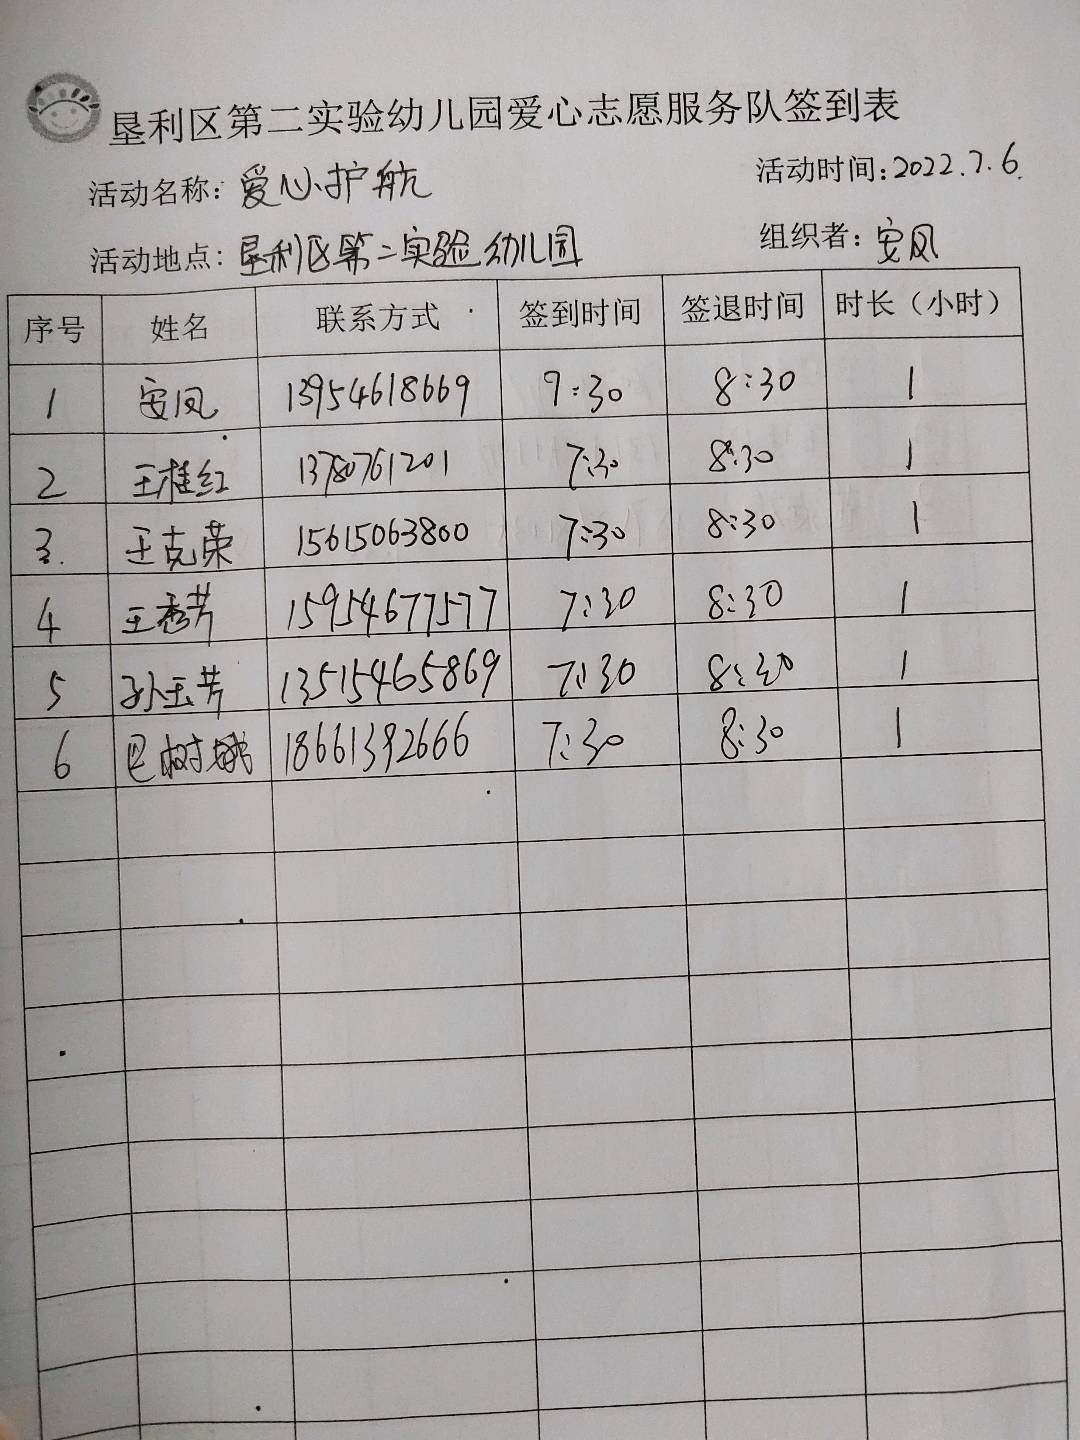 垦利区第二实验幼儿园爱心志愿服务队签到表
活动名称：爱心护航 活动时间：2022.7.6.
活动地点：垦利区第二实验幼儿园 组织者：安凤
序号 姓名 联系方式 签到时间 签退时间 时长（小时）
1 安凤 13954618669 9:30 8:30 1
2 王桂红 13780761201 7:30 8:30 1
3. 王克荣 15615063800 7:30 8:30 1
4 王秀芳 15954677577 7:30 8:30 1
5 孙玉芳 13515465869 7:30 8:30 1
6 巴树娥 18661392666 7:30 8:30 1